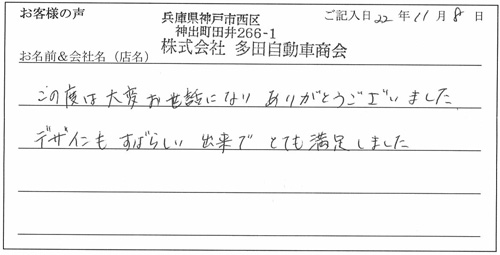 お客様の声
兵庫県神戸市西区
神出町田井266-1
ご記入日22年11月8日
お名前&会社名(店名)
株式会社 多田自動車商会
この度は大変お世話になり ありがとうございました
デザインも すばらしい 出来で とても満足しました